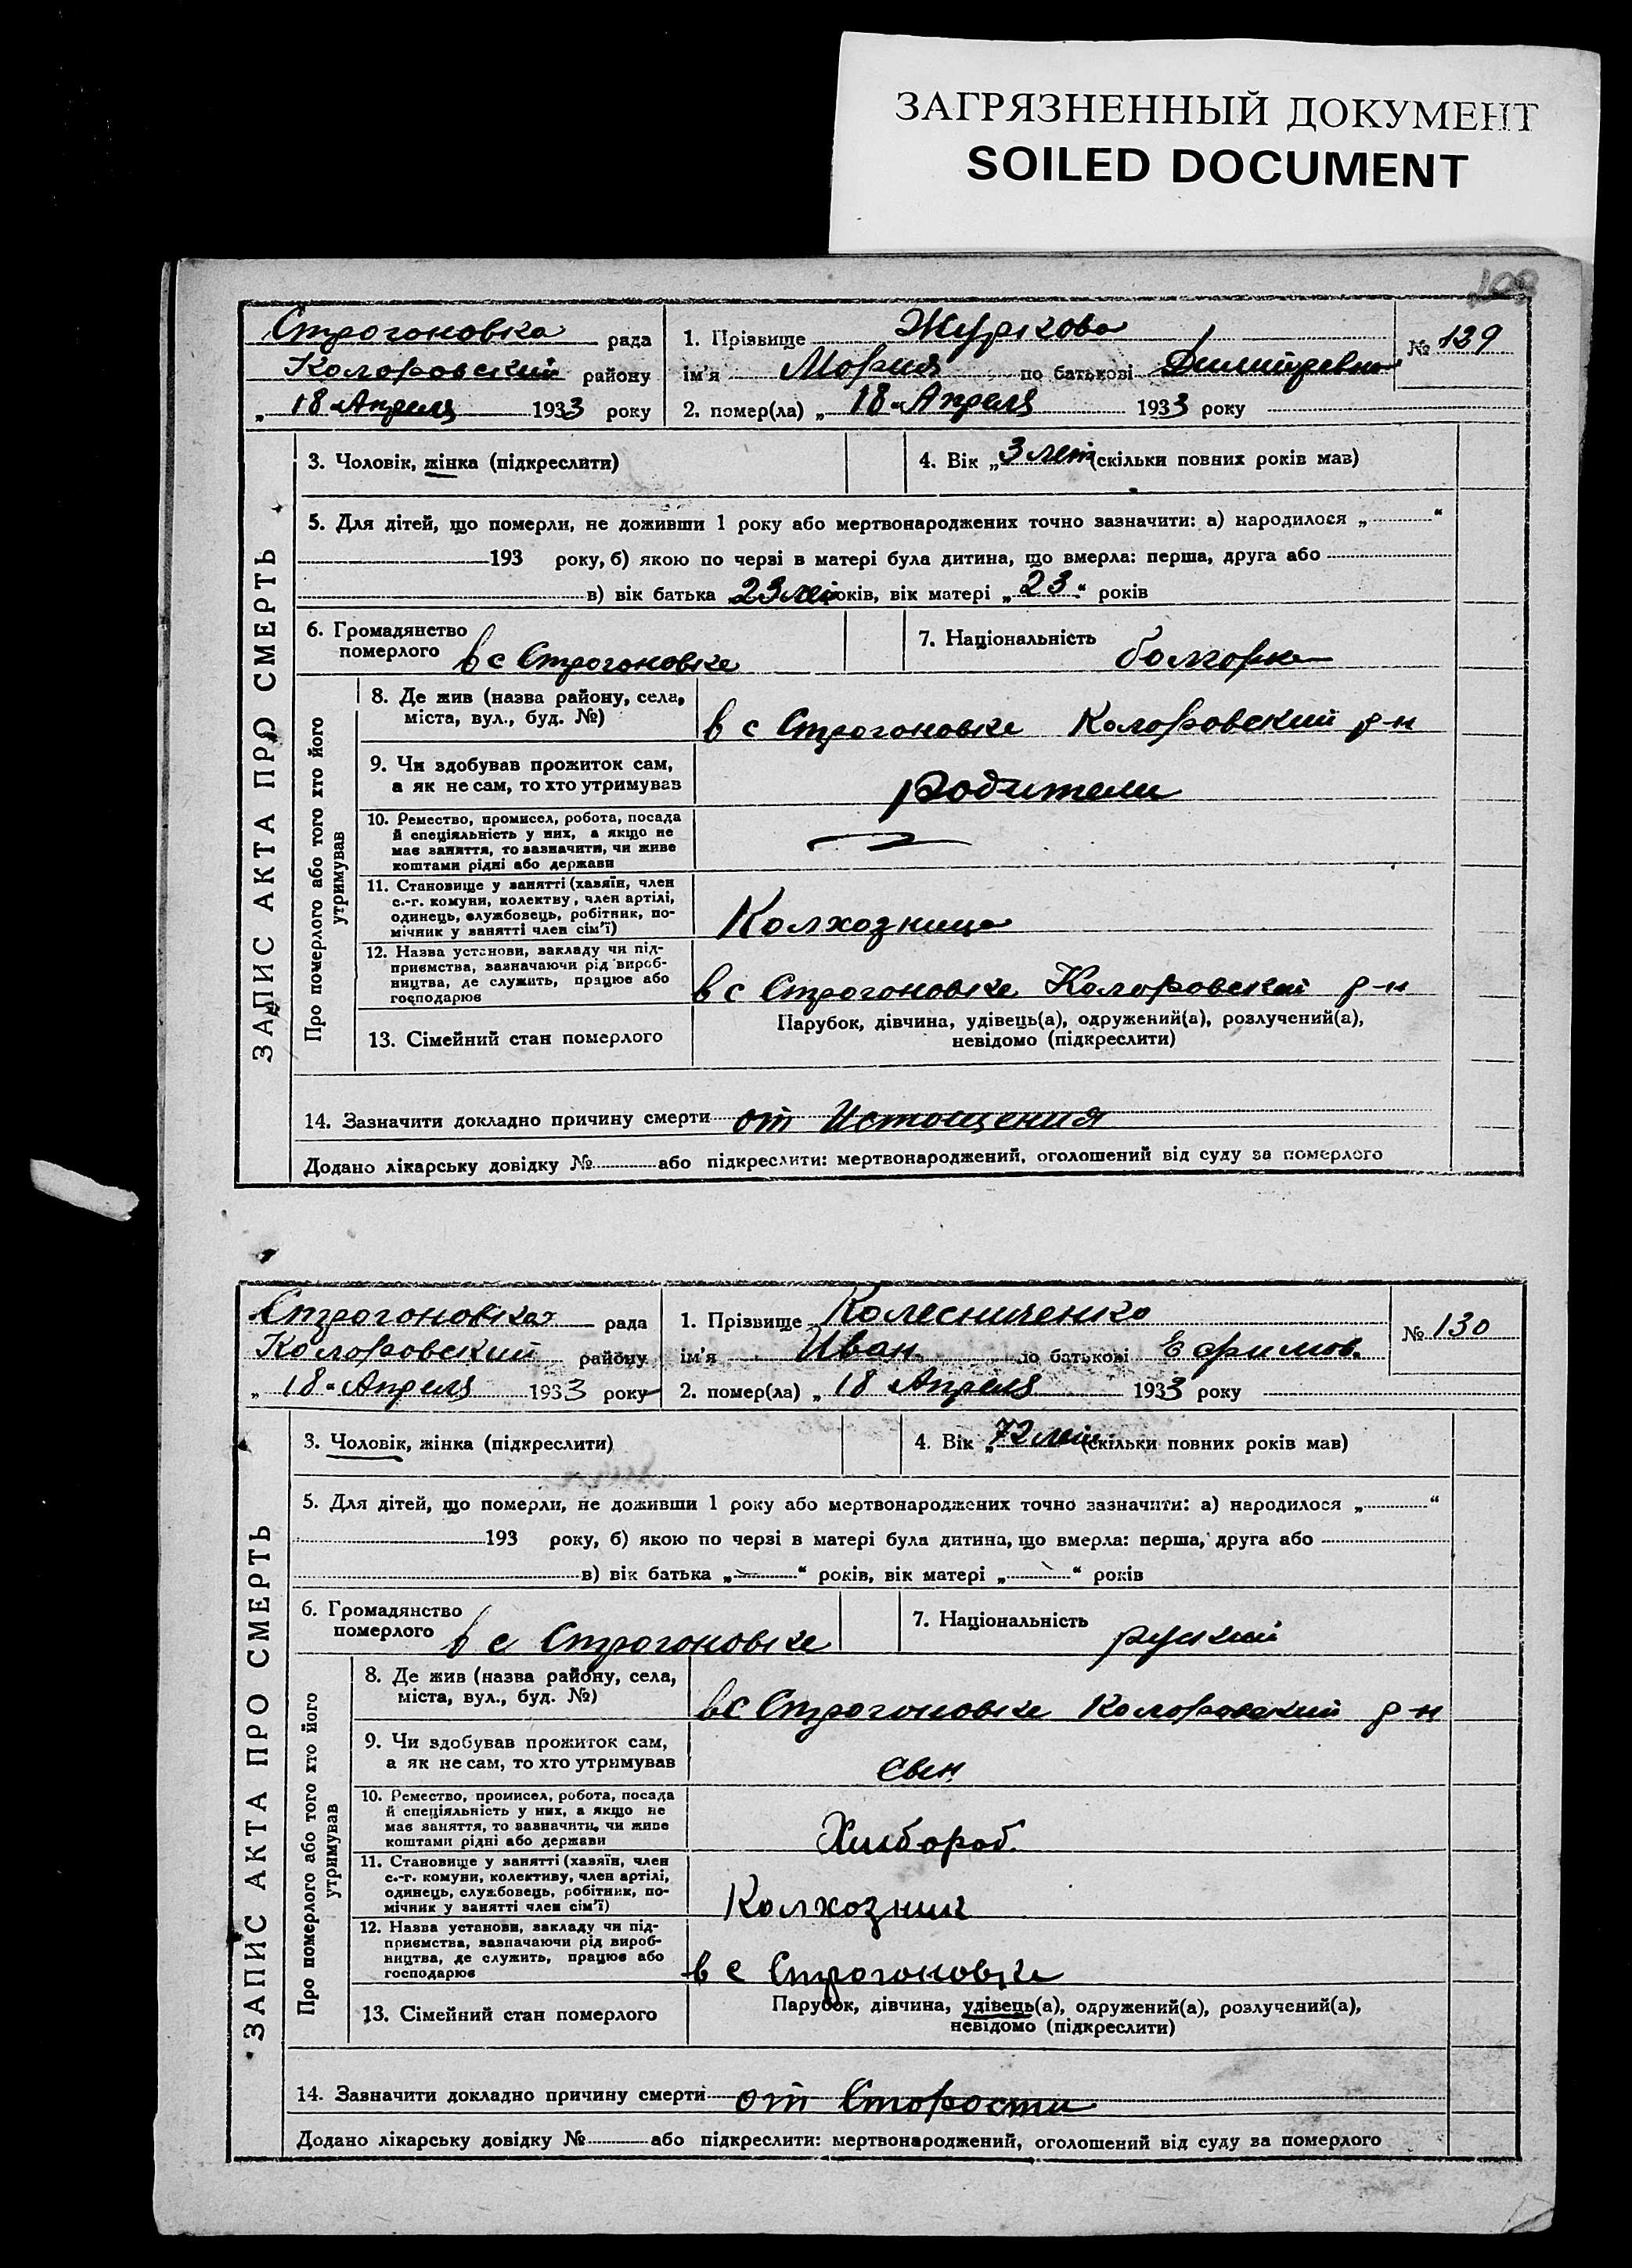 ЗАГРЯЗНЕННЫЙ ДОКУМЕНТ
SOILED DOCUMENT
109
Строгоновка рада
Коларовский району
„ 18 " Апреля 1933 року
1. Прізвище Журкова
ім'я Мария по батькові Димитревна
2. помер(ла) „ 18 " Апреля 1933 року
№ 129
ЗАПИС АКТА ПРО СМЕРТЬ
3. Чоловік, жінка (підкреслити)
4. Вік „ 3 лет (скільки повних років мав)
5. Для дітей, що померли, не доживши 1 року або мертвонароджених точно зазначити: а) народилося „ “
193 року, б) якою по черзі в матері була дитина, що вмерла: перша, друга або
в) вік батька 23 лет років, вік матері „ 23 “ років
6. Громадянство
померлого в с Строгоновке
7. Національність болгарка
Про померлого або того хто його
утримував
8. Де жив (назва району, села,
міста, вул., буд. №)
в с Строгоновке Коларовский р-н
9. Чи здобував прожиток сам,
а як не сам, то хто утримував
родители
10. Ремество, промисел, робота, посада
й спеціяльність у них, а якщо не
має заняття, то зазначити, чи живе
коштами рідні або держави
11. Становище у занятті (хазяїн, член
с.-г. комуни, колектву, член артілі,
одинець, службовець, робітник, по-
мічник у занятті член сім'ї)
Колхозница
12. Назва установи, закладу чи під-
приємства, зазначаючи рід вироб-
ництва, де служить, працює або
господарює
в с Строгоновке Коларовский р-н
13. Сімейний стан померлого
Парубок, дівчина, удівець(а), одружений(а), розлучений(а),
невідомо (підкреслити)
14. Зазначити докладно причину смерти от Истощения
Додано лікарську довідку № або підкреслити: мертвонароджений, оголошений від суду за померлого
Строгоновка рада
Коларовский району
„ 18 " Апреля 1933 року
1. Прізвище Колесниченко
ім'я Иван по батькові Ефимов.
2. помер(ла) „ 18 Апреля 1933 року
№ 130
ЗАПИС АКТА ПРО СМЕРТЬ
3. Чоловік, жінка (підкреслити)
4. Вік „ 72 лет (скільки повних років мав)
5. Для дітей, що померли, не доживши 1 року або мертвонароджених точно зазначити: а) народилося „ “
193 року, б) якою по черзі в матері була дитина, що вмерла: перша, друга або
в) вік батька „ “ років, вік матері „ “ років
6. Громадянство
померлого в с Строгоновке
7. Національність руский
Про померлого або того хто його
утримував
8. Де жив (назва району, села,
міста, вул., буд. №)
в с Строгоновке Коларовский р-н
9. Чи здобував прожиток сам,
а як не сам, то хто утримував
сын
10. Ремество, промисел, робота, посада
й спеціяльність у них, а якщо не
має заняття, то зазначити, чи живе
коштами рідні або держави
Хлибороб.
11. Становище у занятті (хазяїн, член
с.-г. комуни, колективу, член артілі,
одинець, службовець, робітник, по-
мічник у занятті член сім'ї)
Колхозник
12. Назва установи, закладу чи під-
приємства, зазначаючи рід вироб-
ництва, де служить, працює або
господарює
в с Строгоновке
13. Сімейний стан померлого
Парубок, дівчина, удівець(а), одружений(а), розлучений(а),
невідомо (підкреслити)
14. Зазначити докладно причину смерти от Старости
Додано лікарську довідку № або підкреслити: мертвонароджений, оголошений від суду за померлого